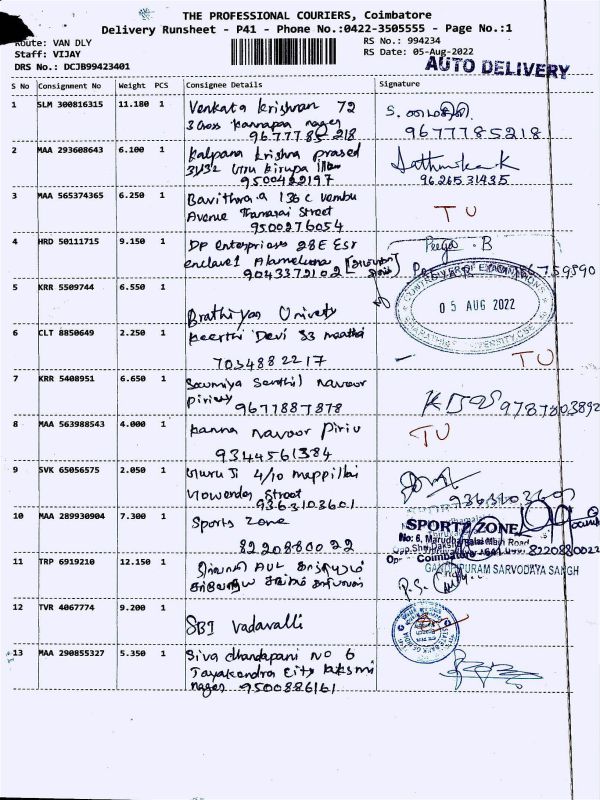 THE PROFESSIONAL COURIERS, Coimbatore
Delivery Runsheet - P41 - Phone No.:0422-3505555 - Page No.:1
Route: VAN DLY
RS No.: 994234
Staff: VIJAY
RS Date: 05-Aug-2022
DRS No.: DCJB99423401
AUTO DELIVERY
S No Consignment No Weight PCS Consignee Details Signature
1 SLM 300816315 11.180 1 Venkata Krishnan 72
3 Cross Kannapa nager
9677785218 9677785218
2 MAA 293608643 6.100 1 Kalpana krishna prased
31/32 Guru kirupa illam
9500422197 9626531435
3 MAA 565374365 6.250 1 Bavithra.a 136 c Vembu
Avenue Thanasai Street TU
9500276054
4 HRD 50111715 9.150 1 DP enterprises 28E Esr
enclave1
9043372102
Peeja . B
5 KRR 5509744 6.550 1
05 AUG 2022
Brathiyar Univety
6 CLT 8850649 2.250 1 Keerthi Devi 33
7034882217 TU
7 KRR 5408951 6.650 1 Soumiya Senthil Navoor
piriuv
9677887878 9787803892
8 MAA 563988543 4.000 1 Kanna Navoor Piriv
9344561384 TU
9 SVK 65056575 2.050 1 Guru Ji 4/10 mappillai
Gowender Street
9363103601
10 MAA 289930904 7.300 1 Sports Zone
8220880022
SPORTZ ZONE
No: 6, Marudhamalai Main Road
8220880022
GANDHIPURAM SARVODAYA SANGH
11 TRP 6919210 12.150 1
12 TVR 4067774 9.200 1
SBI Vadavalli
13 MAA 290855327 5.350 1 Siva chandapani No 6
Jayakendra City Laksmi
Nager 9500886161